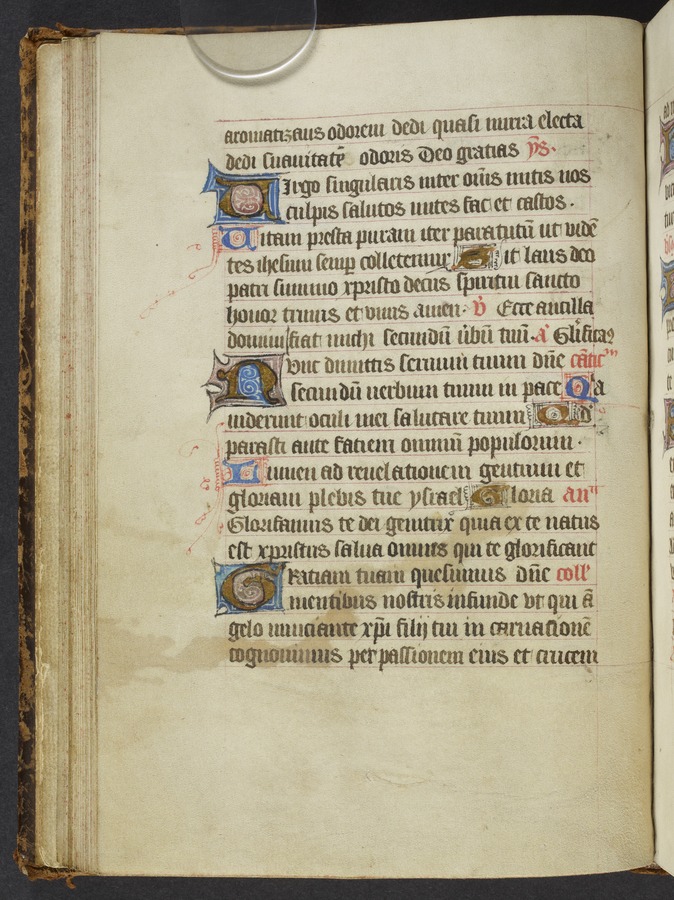 aromatizans odorem dedi quasi mirra electa
dedi suauitatē odoris Deo gratias ẏs.
Uirgo singularis inter om̄s mitis nos
culpis solutos mites fac et castos.
Uitam presta puram iter para tutū ut vidē
tes ihesum semp̄ colletemur Sit laus deo
patri summo xpristo decus spiritui sancto
honor trinus et vnus amen. v̄ Ecce ancilla
domini fiat michi secundū ūbū tuū. a Glīficaꝰ
Nunc dimittis seruum tuum dn̄e cātic̄
secundū uerbum tuum in pace Qīa
uiderunt oculi mei salutare tuum Qd̄
parasti ante faciem omniū populorum.
Lumen ad reuelationem gentium et
gloriam plebis tue ysrael Gloria an̄
Glorificamus te dei genitrix quia ex te natus
est xpristus salua omnes qui te glorificant
Gratiam tuam quesumus dn̄e coll'
mentibus nostris infunde vt qui ā
gelo nunciante xp̄i filij tui in carnationē
cognouimus per passionem eius et crucem